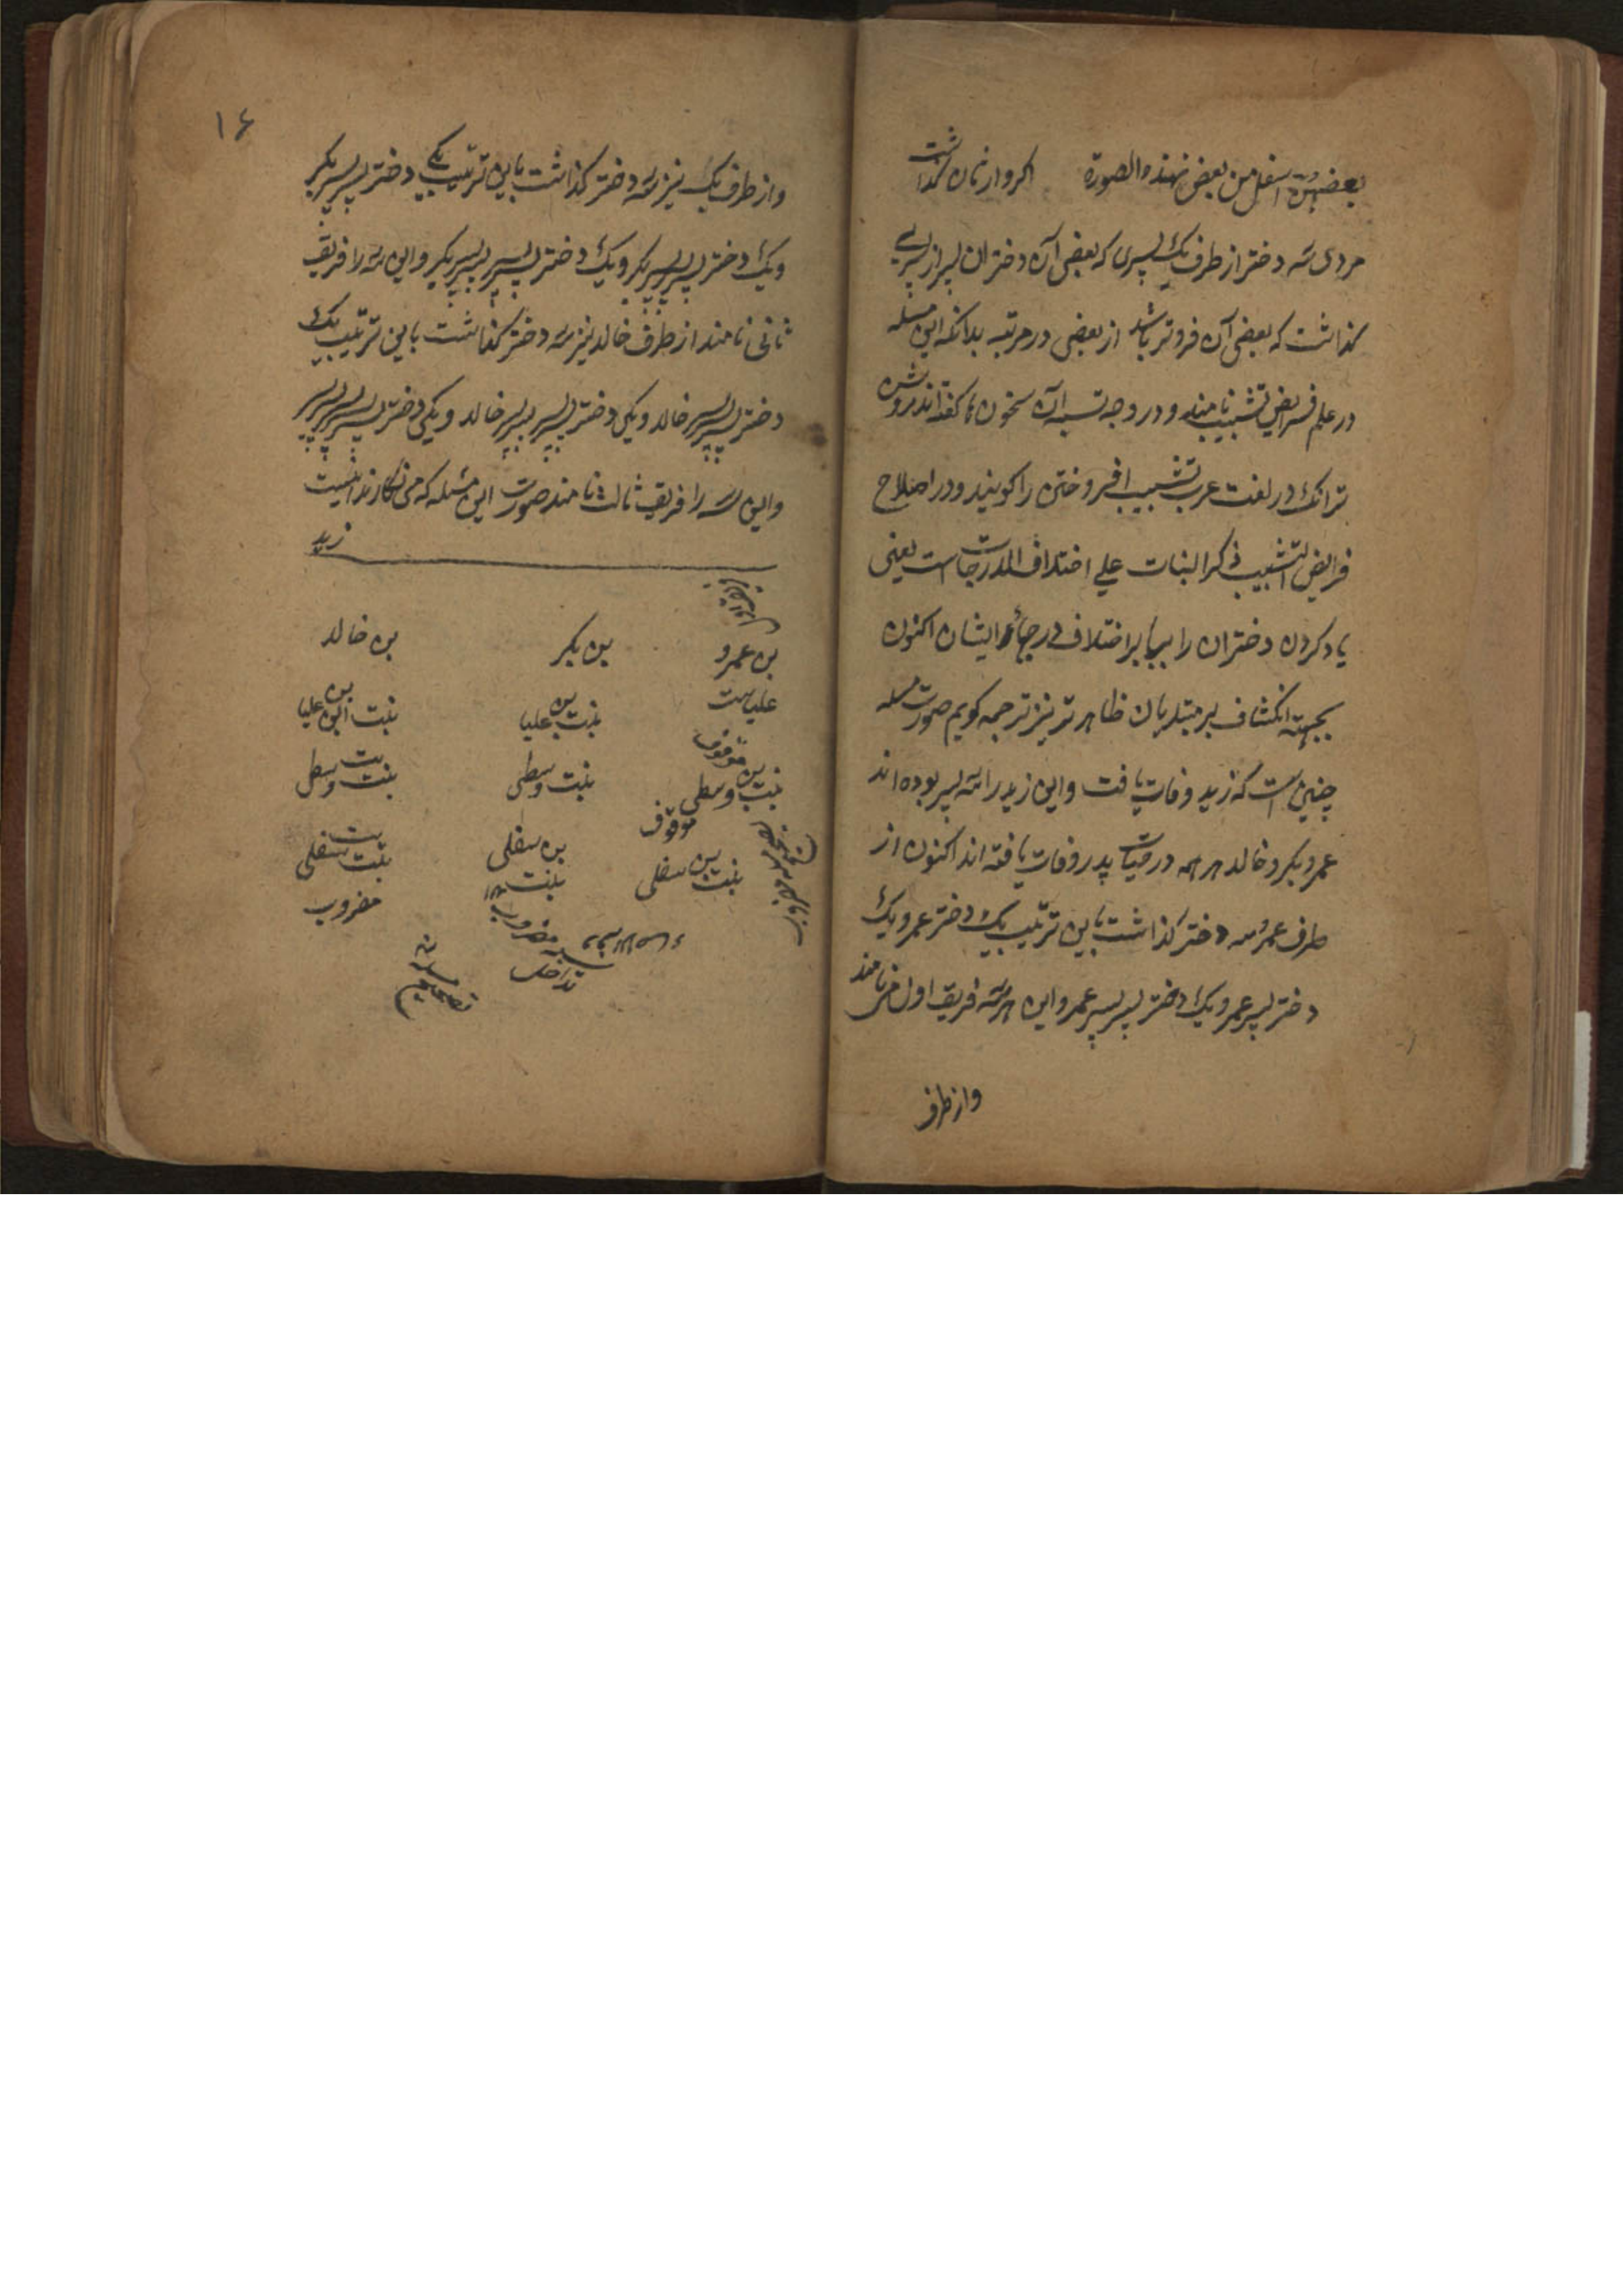 بعضهن اسفل من بعض بهذه الصورة اکر وارثان کذاشت
مردی سه دختر از طرف یک پسری که بعضی آن دختران پسر از پسری
کذاشت که بعضی آن فروتر باشد از بعضی در مرتبه بدانکه این مسله
در علم فرایض تشبیب نامند و در وجه تسمیه آن سخون ها کفته اند روشن
ترانک در لغت عرب تشبیب افروختن را کویند و در اصلاح
فرایض التشبیب ذکر البنات علی اختلاف الدرجات است یعنی
یاد کردن دختران را بنا بر اختلاف درجهاء ایشان اکنون
بجهته انکشاف بر مبتدیان ظاهرتر نیز ترجمه کویم صورت مسله
چنین است که زید وفات یافت و این زید را سه پسر بوده اند
عمرو بکر و خالد هر همه در حیات پدر وفات یافته اند اکنون از
طرف عمرو سه دختر کذاشت باین ترتیب یک دختر عمرو یک
دختر پسر عمرو یک دختر پسر پسر عمرو این هر سه فریق اول می نامند
واز طرف
۱۶
واز طرف بکر نیز سه دختر کذاشت باین ترتیب یکی دختر پسر بکر
ویک دختر پسر پسر بکر و یک دختر پسر پسر پسر بکر و این سه را فریق
ثانی نامند از طرف خالد نیز سه دختر کذاشت باین ترتیب یک
دختر پسر پسر خالد و یکی دختر پسر پسر پسر خالد و یکی دختر پسر پسر پسر پسر
واین سه را فریق ثالث نامند صورت این مسله که می نکارند اینست
زید
بن عمرو بن بکر بن خالد
علیاست بنت بن علیا بنت ابن بن علیا
موقوف
بنت بن وسطی بنت وسطی بنت وسطی
موقوف
بنت بن سفلی بن سفلی بنت سفلی
بنت
مضروب
مضروب
تداخل